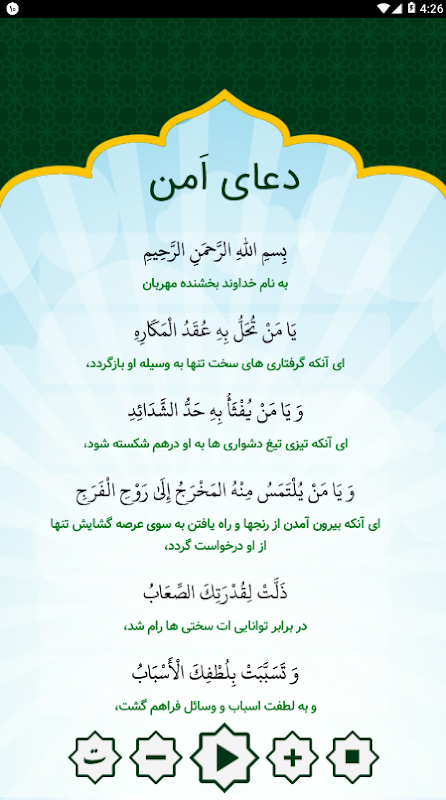 ۱۰ 4:26
دعای اَمن
بِسمِ اللهِ الرَّحمَنِ الرَّحِیمِ
به نام خداوند بخشنده مهربان
یَا مَنْ تُحَلُّ بِهِ عُقَدُ الْمَکَارِهِ
ای آنکه گرفتاری های سخت تنها به وسیله او بازگردد،
وَ یَا مَنْ یُفْثَأُ بِهِ حَدُّ الشَّدَائِدِ
ای آنکه تیزی تیغ دشواری ها به او درهم شکسته شود،
وَ یَا مَنْ یُلْتَمَسُ مِنْهُ المَخْرَجُ إِلَىٰ رَوْحِ الْفَرَجِ
ای آنکه بیرون آمدن از رنجها و راه یافتن به سوی عرصه گشایش تنها
از او درخواست گردد،
ذَلَّتْ لِقُدْرَتِكَ الصِّعَابُ
در برابر توانایی ات سختی ها رام شد،
وَ تَسَبَّبَتْ بِلُطْفِكَ الْأَسْبَابُ
و به لطفت اسباب و وسائل فراهم گشت،
ت